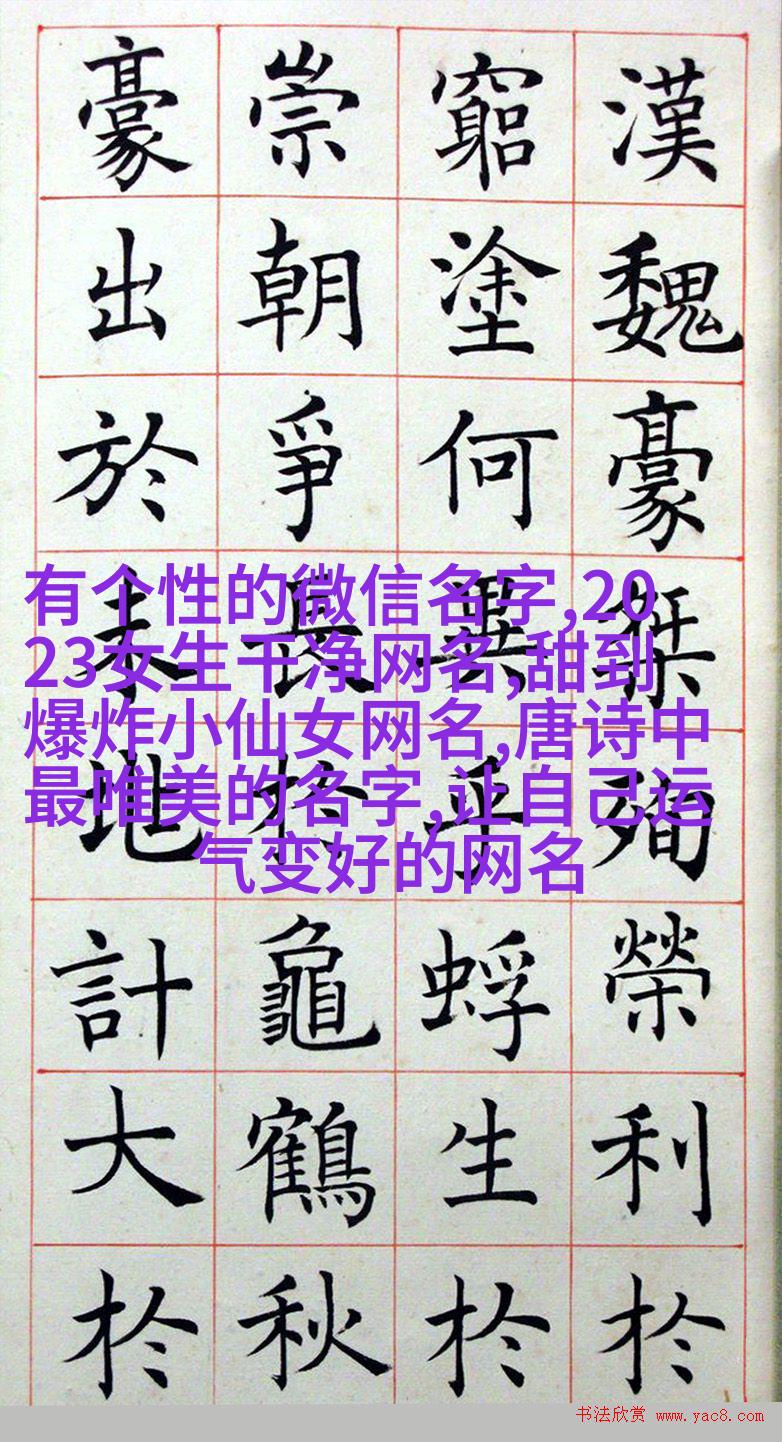 漢魏豪殉榮利於
窮塗何異乎蜉生於
崇朝爭長於龜鶴秋
豪出於地計大於
有个性的微信名字,20
23女生干净网名,甜到
爆炸小仙女网名,唐诗中
最唯美的名字,让自己运
气变好的网名
书法欣赏 www.yac8.com